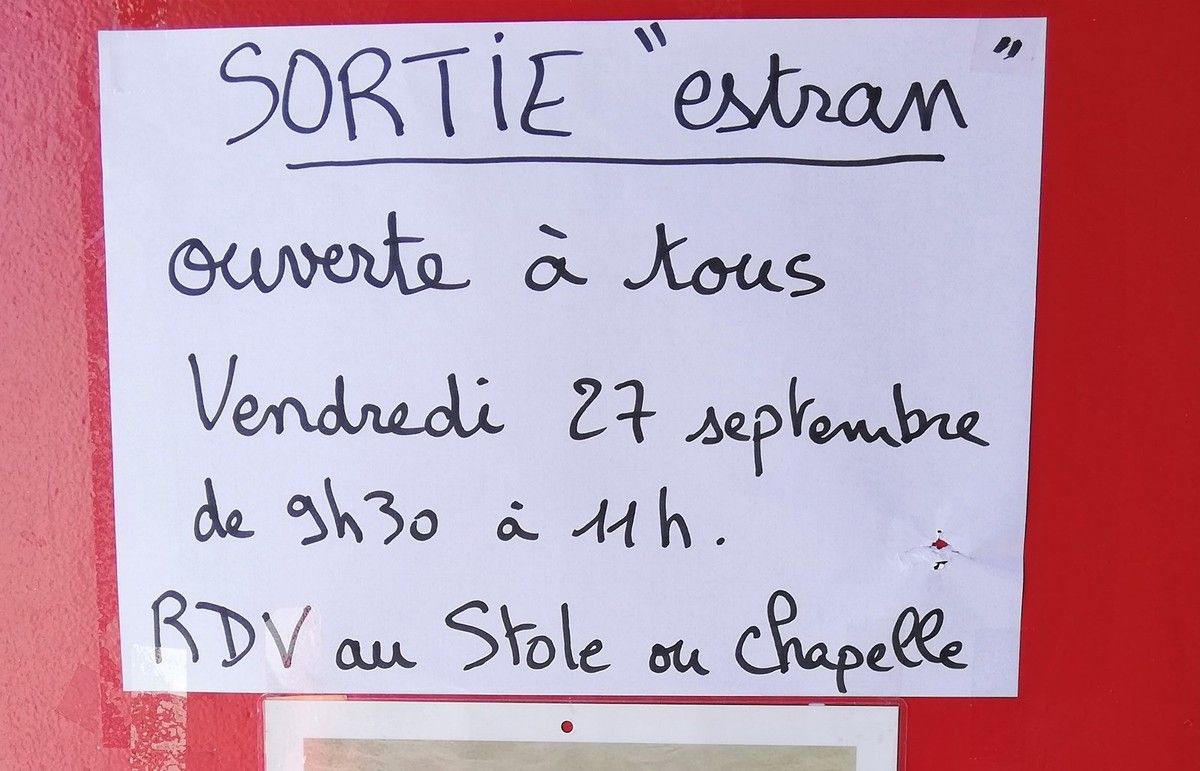 SORTIE "estran"
ouverte à tous
Vendredi 27 septembre
de 9h30 à 11h.
RDV au Stole ou chapelle